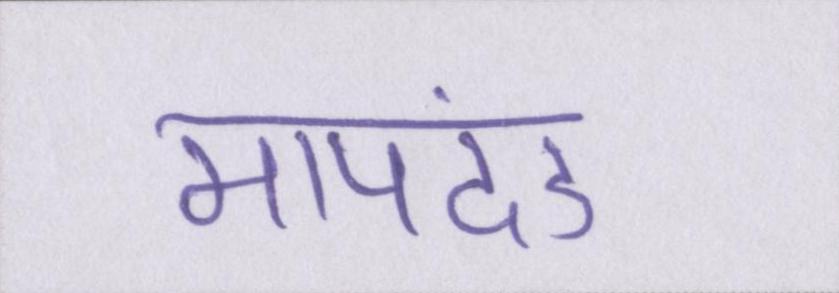 मापदंड